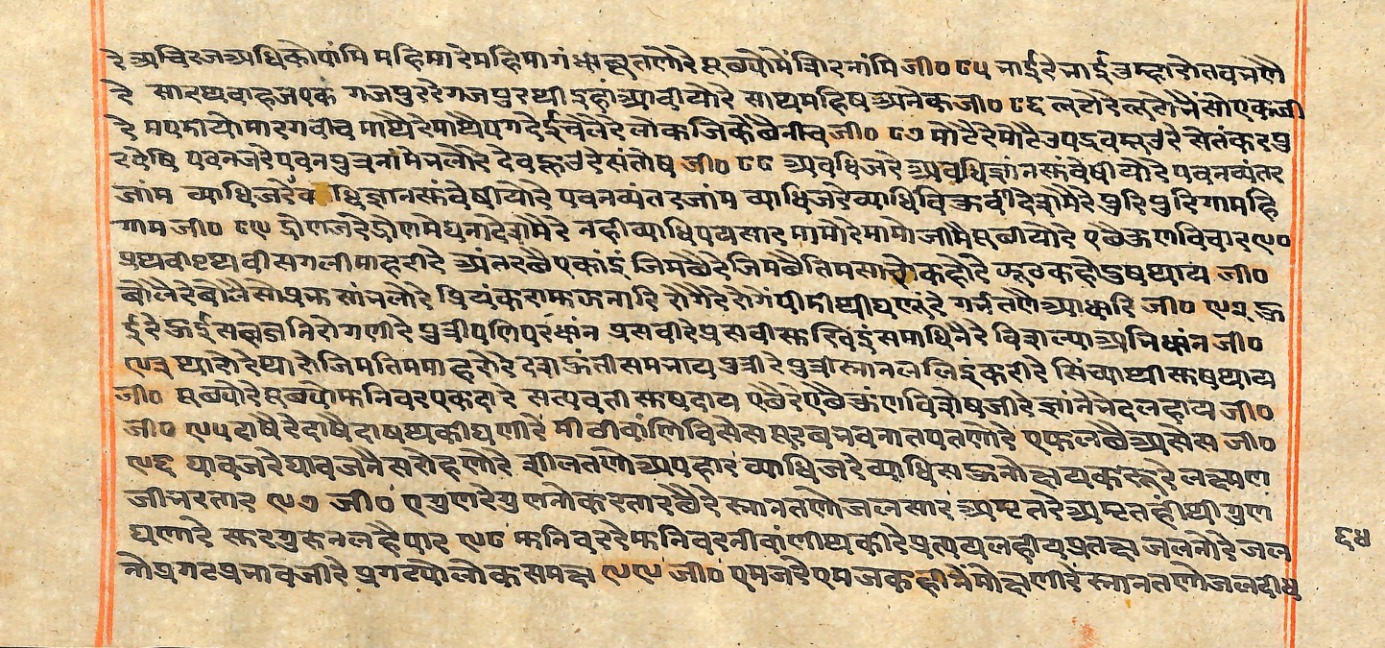 रे अचिरजअधिकोपांमि महिमारेमहिमागंधाकूतणोरे पूछ्योमेंत्रिारनांमि जी० ८५ नाईरेनाईतुम्हारोतवनणै
रे सारथवाहजएकं गजपुररेगजपुरथीइहांआवीयोरे साथमहिषअनेकजी० ८६ लटोरेलटोनैंसोएकजी
रे मपडीयोमारगवीच माथैरेमाथैपगदेईचलैरे लोकजिकैछैनीच जी० ८७ मोटैरेमोटैउपद्रवमूउंरे सेतंकरपु
रवेषि पवनजरेपवनपुत्रनांमनलोरे देवहूउंरेसंतोष जी० ८८ अवधिजरेअवधिज्ञांनसुंवेषीयोरे पवनव्यंतर
जांम व्याधिजरेव धिज्ञानसुंवेषीयोरे पवनव्यंतरजांम व्याधिजरेव्याधिविकुर्वीदेशमैरे पुरिपुरिगामहि
गाम जी० ८९ द्रोणजरेद्रोणमेघनादेशमैरे नहीव्याधिपयसार मामोरेमामोजीमैपूछीयोरे एछैकुणविचार ९०
पृथवीपृथवीसगलीमाहरीरे अंतरछैएकांइं जिमछैरेजिमछैतिमसाचोकहोरे झूठकहैडुषथाय जी०
बोलैरेबोलैसोप्रभुसांनलोरे प्रियंकरामुझनारि रोगैरेरोगेंपीडीथीघणुंरे गर्नतणैआधारि जी० ९२ हु
ईरेहुईसलूजानिरोगणीरे पुत्रीपणिपरंधांन प्रसवीरेप्रसवीसुरविइंसमाधिनैरे विशल्याअनिधांन जी०
९३ थारोरेथारोजिमतिममाहरोरे देशहुंतीसमनाय पुत्रीरेपुत्रीस्नानजलिइंकरीरे सिंच्याथीसुषथाय
जी० पूछ्योरेपूछ्योमुनिवरएकदारे सत्यवतीसुषदाय एछैरेएछैकुंणविशेषजीरे ज्ञांनेनेदलहाय जी०
जी० ९५ दाषैरेदाषैदाषथकीघणीरे मीठीवांणिविसेस पूरवनवनातपतणोरे एफलछैअसेस जी०
९६ घावजरेघावजनैंसरोहणोरे शीलतणोअपहार व्याधिजरेव्याधिसहुनोदायकरूरे लक्ष्मण
जीनरतार ९७ जी० एगुणरेगुणनोकरतारछैरे स्नानतणोजलसार अमृतरेअमृतहींथीगुण
घणोरे सुरगुरुनलहैपार ९८ मुनिवररेमुनिवरनीवांणीथकीरे प्रत्ययलहीयप्रतक्ष जलनोरेजल
नोप्रगटप्रनावजीरे प्रगटयोलोकसमक्ष ९९ जी० एमजरेएमजकहीनैंमोक्षणीरे स्नानतणोजलदीध
६४